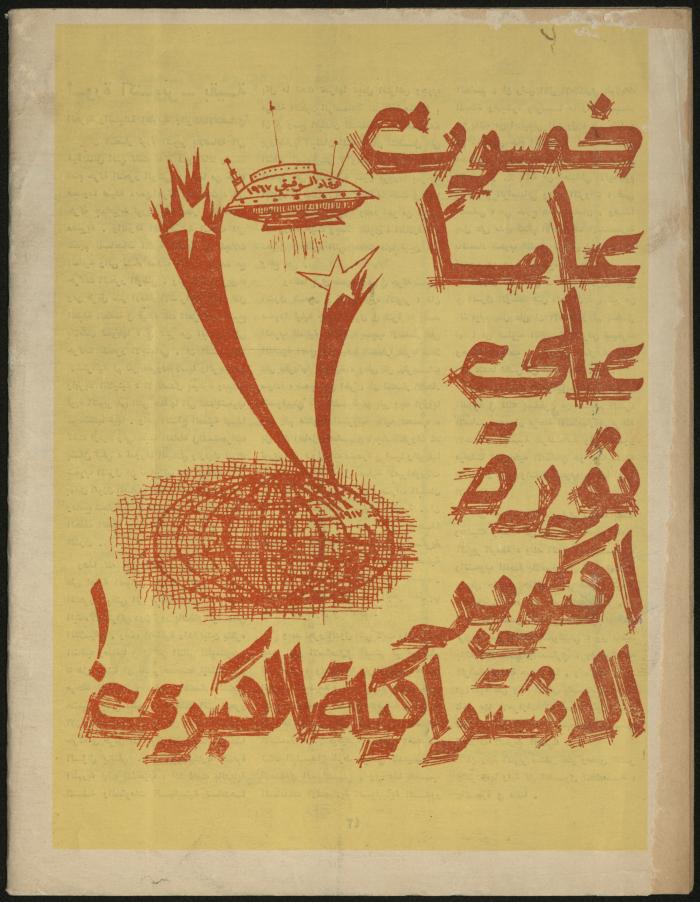 خمسون
عاماً
على
ثورة
اكتوبر
الاشتراكية الكبرى!
الاتحاد السوفيتي ١٩٦٧
١٩١٧